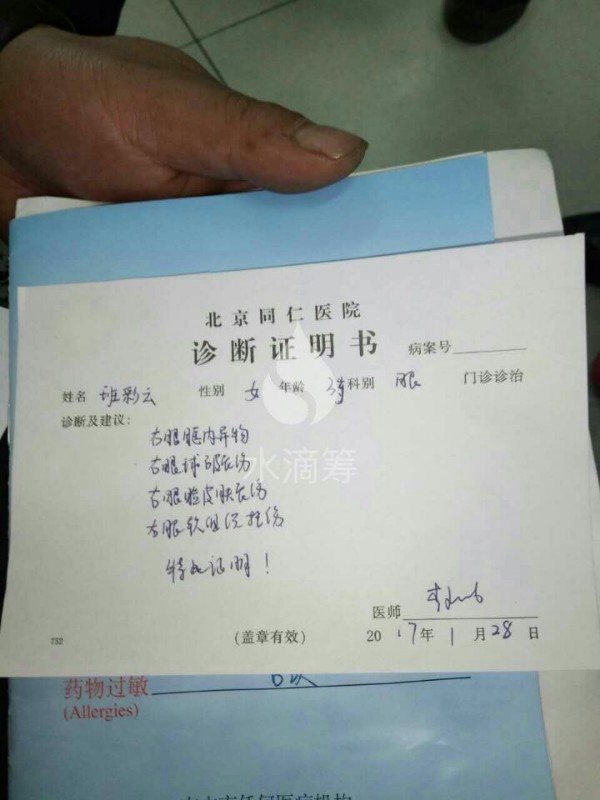 北京同仁医院
诊断证明书
病案号
姓名 班彩云 性别 女 年龄 科别 眼 门诊诊治
诊断及建议:
右眼眶内异物
右眼球破裂伤
右眼睑皮肤裂伤
右眼软组织挫伤
特此证明!
水滴筹
医师
TS2 (盖章有效) 2017年1月28日
药物过敏
(Allergies)